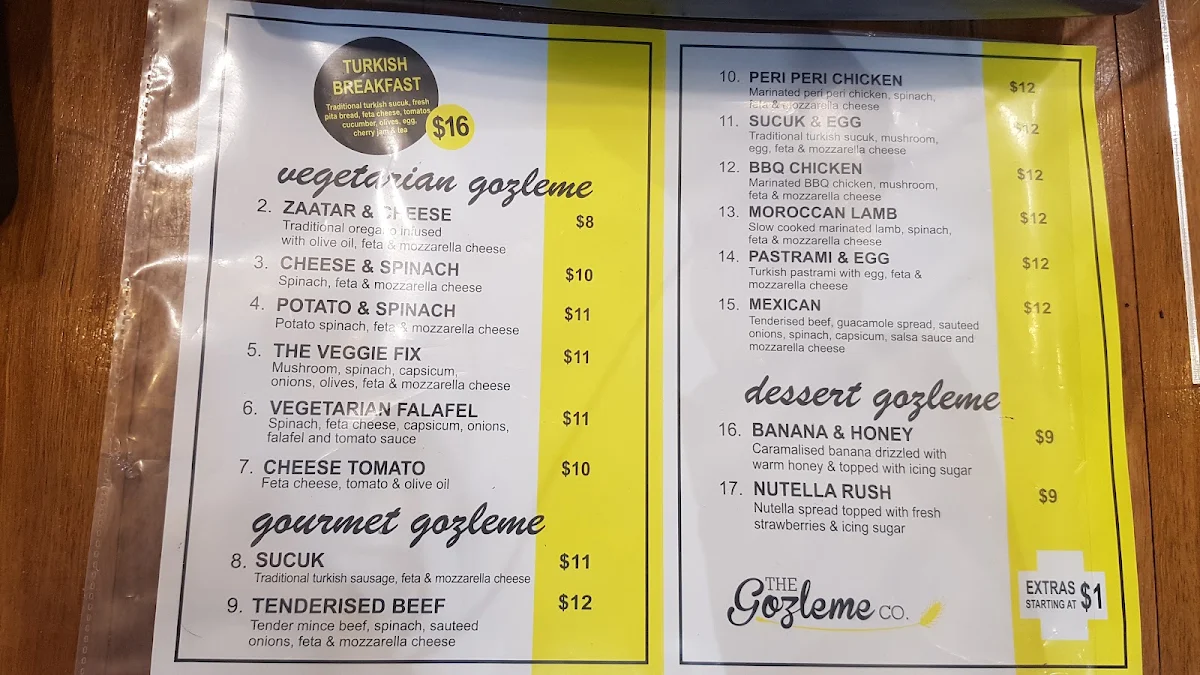 TURKISH
BREAKFAST
Traditional turkish sucuk, fresh
pita bread, feta cheese, tomatos,
cucumber, olives, egg,
cherry jam & tea
$16
vegetarian gozleme
2. ZAATAR & CHEESE $8
Traditional oregano infused
with olive oil, feta & mozzarella cheese
3. CHEESE & SPINACH $10
Spinach, feta & mozzarella cheese
4. POTATO & SPINACH $11
Potato spinach, feta & mozzarella cheese
5. THE VEGGIE FIX $11
Mushroom, spinach, capsicum,
onions, olives, feta & mozzarella cheese
6. VEGETARIAN FALAFEL $11
Spinach, feta cheese, capsicum, onions,
falafel and tomato sauce
7. CHEESE TOMATO $10
Feta cheese, tomato & olive oil
gourmet gozleme
8. SUCUK $11
Traditional turkish sausage, feta & mozzarella cheese
9. TENDERISED BEEF $12
Tender mince beef, spinach, sauteed
onions, feta & mozzarella cheese
10. PERI PERI CHICKEN $12
Marinated peri peri chicken, spinach,
feta & mozzarella cheese
11. SUCUK & EGG $12
Traditional turkish sucuk, mushroom,
egg, feta & mozzarella cheese
12. BBQ CHICKEN $12
Marinated BBQ chicken, mushroom,
feta & mozzarella cheese
13. MOROCCAN LAMB $12
Slow cooked marinated lamb, spinach,
feta & mozzarella cheese
14. PASTRAMI & EGG $12
Turkish pastrami with egg, feta &
mozzarella cheese
15. MEXICAN $12
Tenderised beef, guacamole spread, sauteed
onions, spinach, capsicum, salsa sauce and
mozzarella cheese
dessert gozleme
16. BANANA & HONEY $9
Caramalised banana drizzled with
warm honey & topped with icing sugar
17. NUTELLA RUSH $9
Nutella spread topped with fresh
strawberries & icing sugar
THE
Gozleme CO.
EXTRAS
STARTING AT $1